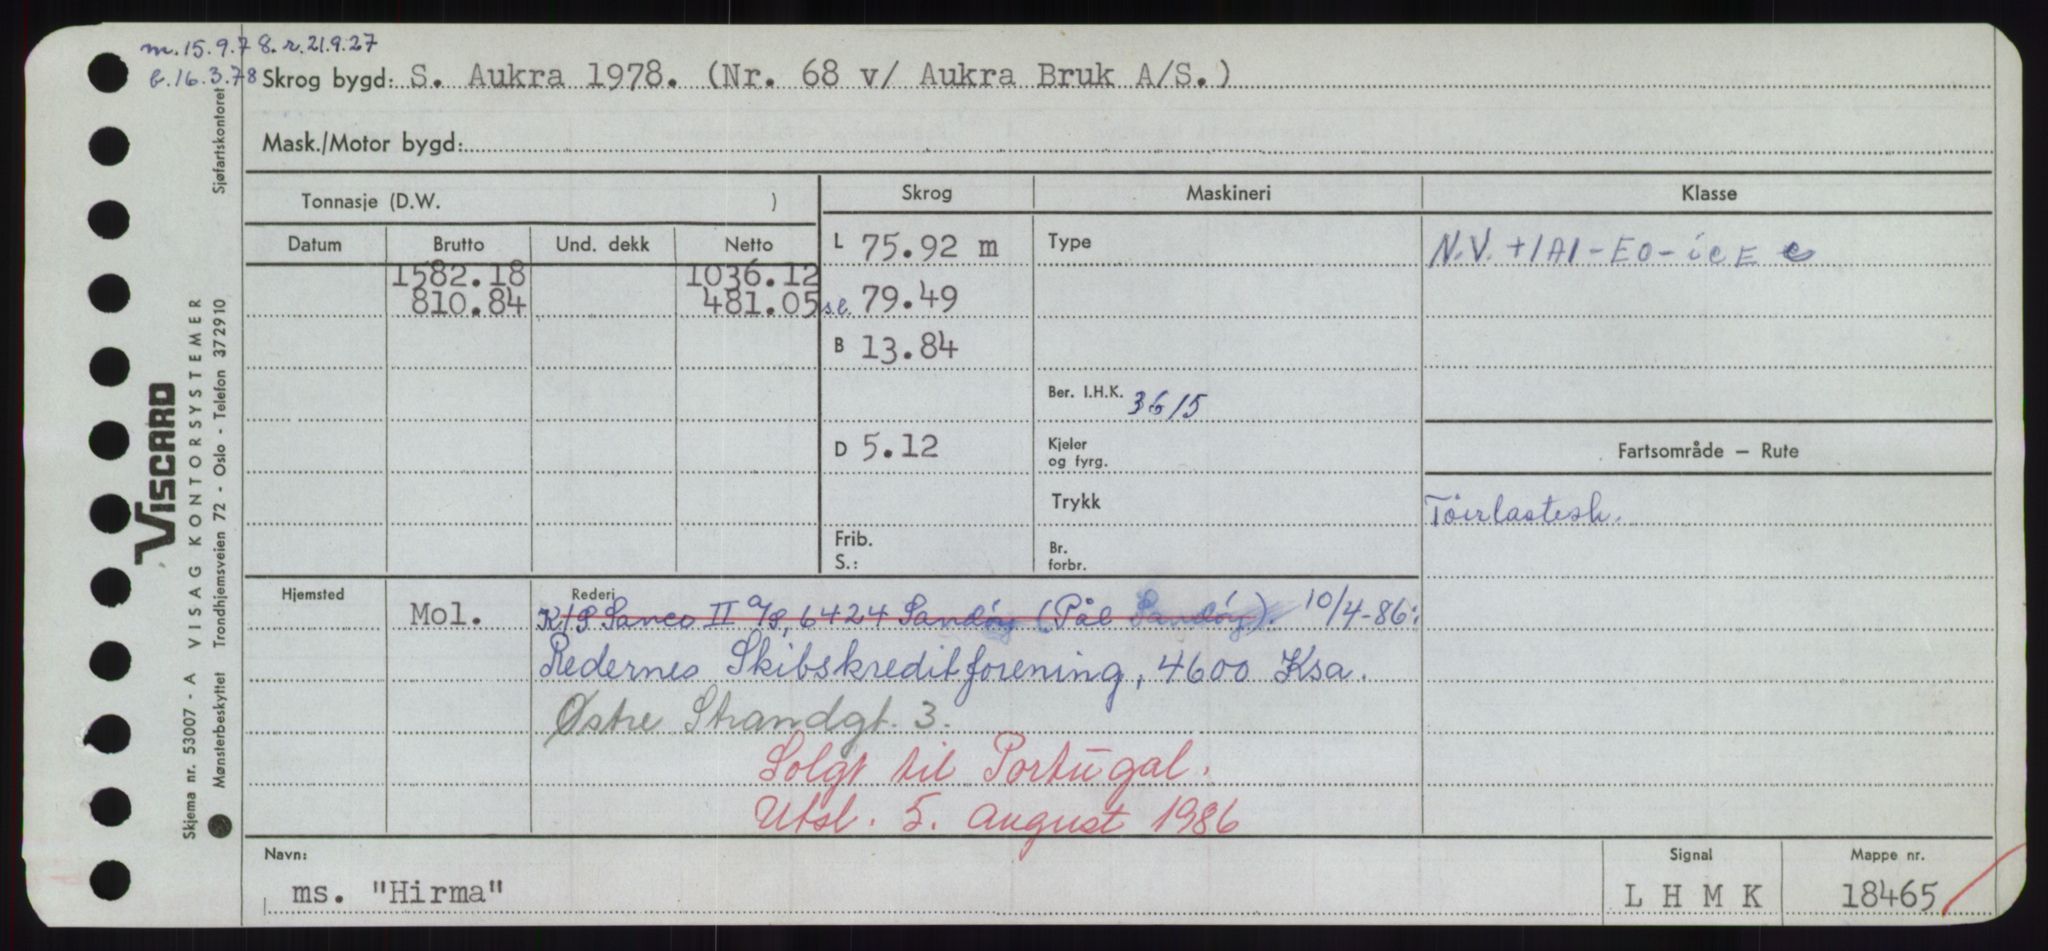 m. 15.9.78. r. 21.9.27
b. 16.3.78
Skrog bygd: S. Aukra 1978. (Nr. 68 v/ Aukra Bruk A/S.)
Mask./Motor bygd:
Tonnasje (D.W. )
Skrog
Maskineri
Klasse
Datum
Brutto
Und. dekk
Netto
L 75.92 m
Type
N.V. +1A1-EO-iCE C
1582.18
1036.12
810.84
481.05
s.l. 79.49
B 13.84
Ber. I.H.K. 3615
D 5.12
Kjeler
og fyrg.
Fartsområde — Rute
Trykk
Törlastesk.
Frib.
S.:
Br.
forbr.
Hjemsted
Mol.
Rederi
K/S Sanco II A/S, 6424 Sandöy (Pål Sandöy). 10/4-86:
Redernes Skibskreditforening, 4600 Ksa.
Østre Strandgt. 3.
Solgt til Portugal.
Utsl. 5. august 1986
Navn:
ms. "Hirma"
Signal
L H M K
Mappe nr.
18465
VISCARD
VISAG KONTORSYSTEMER
Skjema nr. 53007 - A
Sjøfartskontoret
Trondhjemsveien 72 - Oslo - Telefon 372910
Mønsterbeskyttet